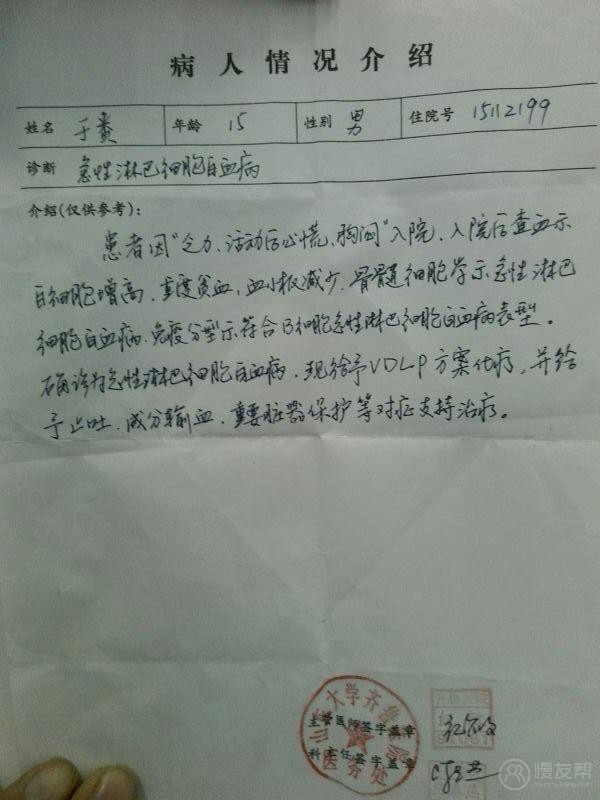 病人情况介绍
姓名 于 年龄 15 性别 男 住院号 15112199
诊断 急性淋巴细胞白血病
介绍(仅供参考):
患者因“乏力、活动后心慌、胸闷”入院。入院后查血示
白细胞增高、重度贫血、血小板减少、骨髓细胞学示急性淋巴
细胞白血病、免疫分型示符合B细胞急性淋巴细胞白血病表型。
确诊为急性淋巴细胞白血病。现给予VDLP方案化疗,并给
予止吐、成分输血、重要脏器保护等对症支持治疗。
山东大学齐鲁医
主管医师签字盖章
科主任签字盖章
医务处
慢友帮